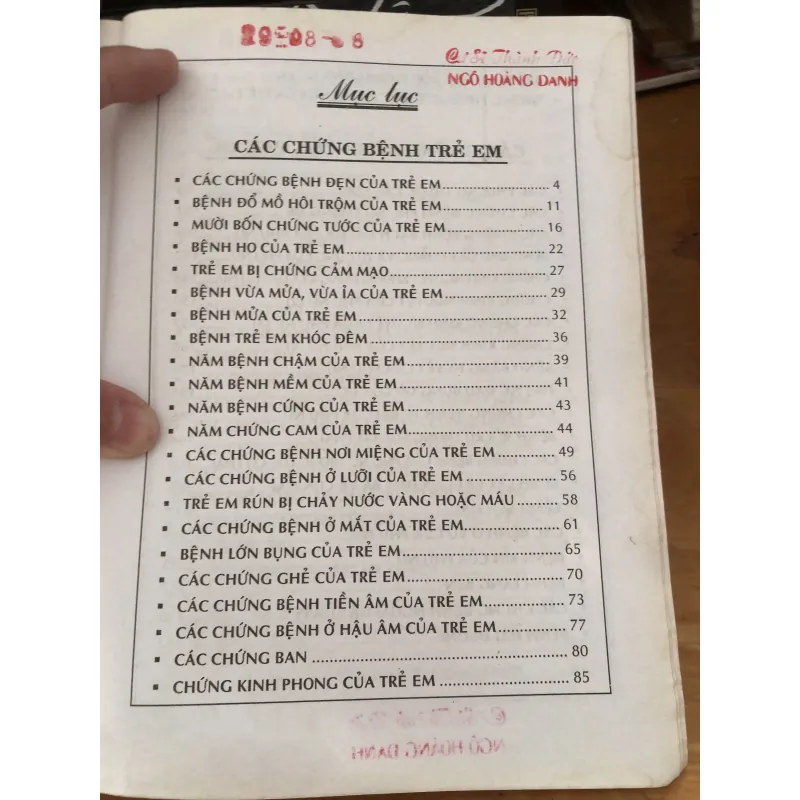 Cư Sĩ Thành Đức
NGÔ HOÀNG DANH
Mục lục
CÁC CHỨNG BỆNH TRẺ EM
▪ CÁC CHỨNG BỆNH ĐẸN CỦA TRẺ EM.......................... 4
▪ BỆNH ĐỔ MỒ HÔI TRỘM CỦA TRẺ EM........................ 11
▪ MƯỜI BỐN CHỨNG TƯỚC CỦA TRẺ EM....................... 16
▪ BỆNH HO CỦA TRẺ EM............................................... 22
▪ TRẺ EM BỊ CHỨNG CẢM MẠO..................................... 27
▪ BỆNH VỪA MỬA, VỪA ỈA CỦA TRẺ EM........................ 29
▪ BỆNH MỬA CỦA TRẺ EM............................................ 32
▪ BỆNH TRẺ EM KHÓC ĐÊM.......................................... 36
▪ NĂM BỆNH CHẬM CỦA TRẺ EM.................................. 39
▪ NĂM BỆNH MỀM CỦA TRẺ EM................................... 41
▪ NĂM BỆNH CỨNG CỦA TRẺ EM.................................. 43
▪ NĂM CHỨNG CAM CỦA TRẺ EM.................................. 44
▪ CÁC CHỨNG BỆNH NƠI MIỆNG CỦA TRẺ EM.............. 49
▪ CÁC CHỨNG BỆNH Ở LƯỠI CỦA TRẺ EM..................... 56
▪ TRẺ EM RÚN BỊ CHẢY NƯỚC VÀNG HOẶC MÁU.......... 58
▪ CÁC CHỨNG BỆNH Ở MẮT CỦA TRẺ EM...................... 61
▪ BỆNH LỚN BỤNG CỦA TRẺ EM................................... 65
▪ CÁC CHỨNG GHẺ CỦA TRẺ EM................................... 70
▪ CÁC CHỨNG BỆNH TIỀN ÂM CỦA TRẺ EM................... 73
▪ CÁC CHỨNG BỆNH Ở HẬU ÂM CỦA TRẺ EM................ 77
▪ CÁC CHỨNG BAN ...................................................... 80
▪ CHỨNG KINH PHONG CỦA TRẺ EM ............................ 85
NGÔ HOÀNG DANH